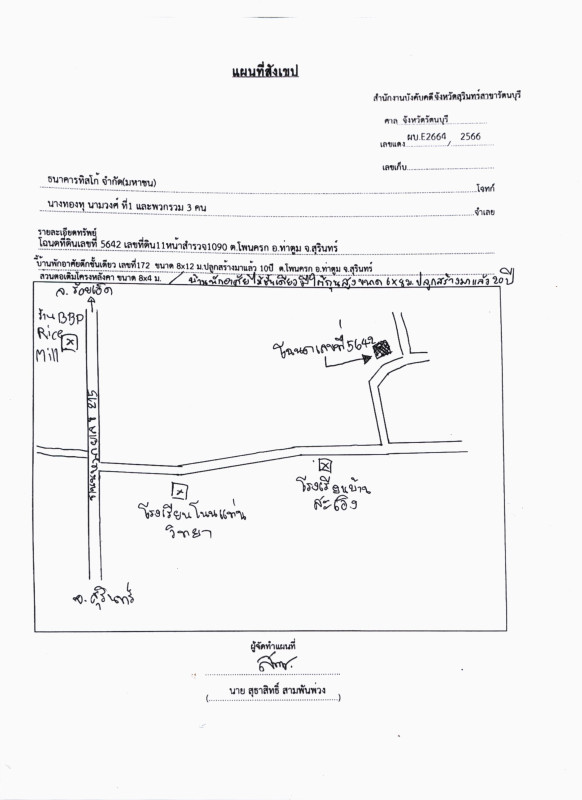 แผนที่สังเขป
สำนักงานบังคับคดีจังหวัดสุรินทร์สาขารัตนบุรี
ศาล จังหวัดรัตนบุรี
เลขแดง ผบ.E2664 / 2566
เลขเก็บ
ธนาคารทิสโก้ จำกัด(มหาชน) โจทก์
นางทองทุ นามวงศ์ ที่1 และพวกรวม 3 คน จำเลย
รายละเอียดทรัพย์
โฉนดที่ดินเลขที่ 5642 เลขที่ดิน11หน้าสำรวจ1090 ต.โพนครก อ.ท่าตูม จ.สุรินทร์
บ้านพักอาศัยตึกชั้นเดียว เลขที่172 ขนาด 8x12 ม.ปลูกสร้างมาแล้ว 10ปี ต.โพนครก อ.ท่าตูม จ.สุรินทร์
ส่วนต่อเติมโครงหลังคา ขนาด 8x4 ม. / บ้านพักอาศัยไม้ชั้นเดียวมีใต้ถุนสูง ขนาด 6x9 ม. ปลูกสร้างมาแล้ว 20 ปี
จ. ร้อยเอ็ด
ร้าน BBP
Rice
Mill
โฉนดเลขที่ 5642
โรงเรียนบ้าน
สะเอิง
โรงเรียนโนนแท่น
วิทยา
จ. สุรินทร์
ผู้จัดทำแผนที่
นาย สุธาสิทธิ์ สามพันพ่วง